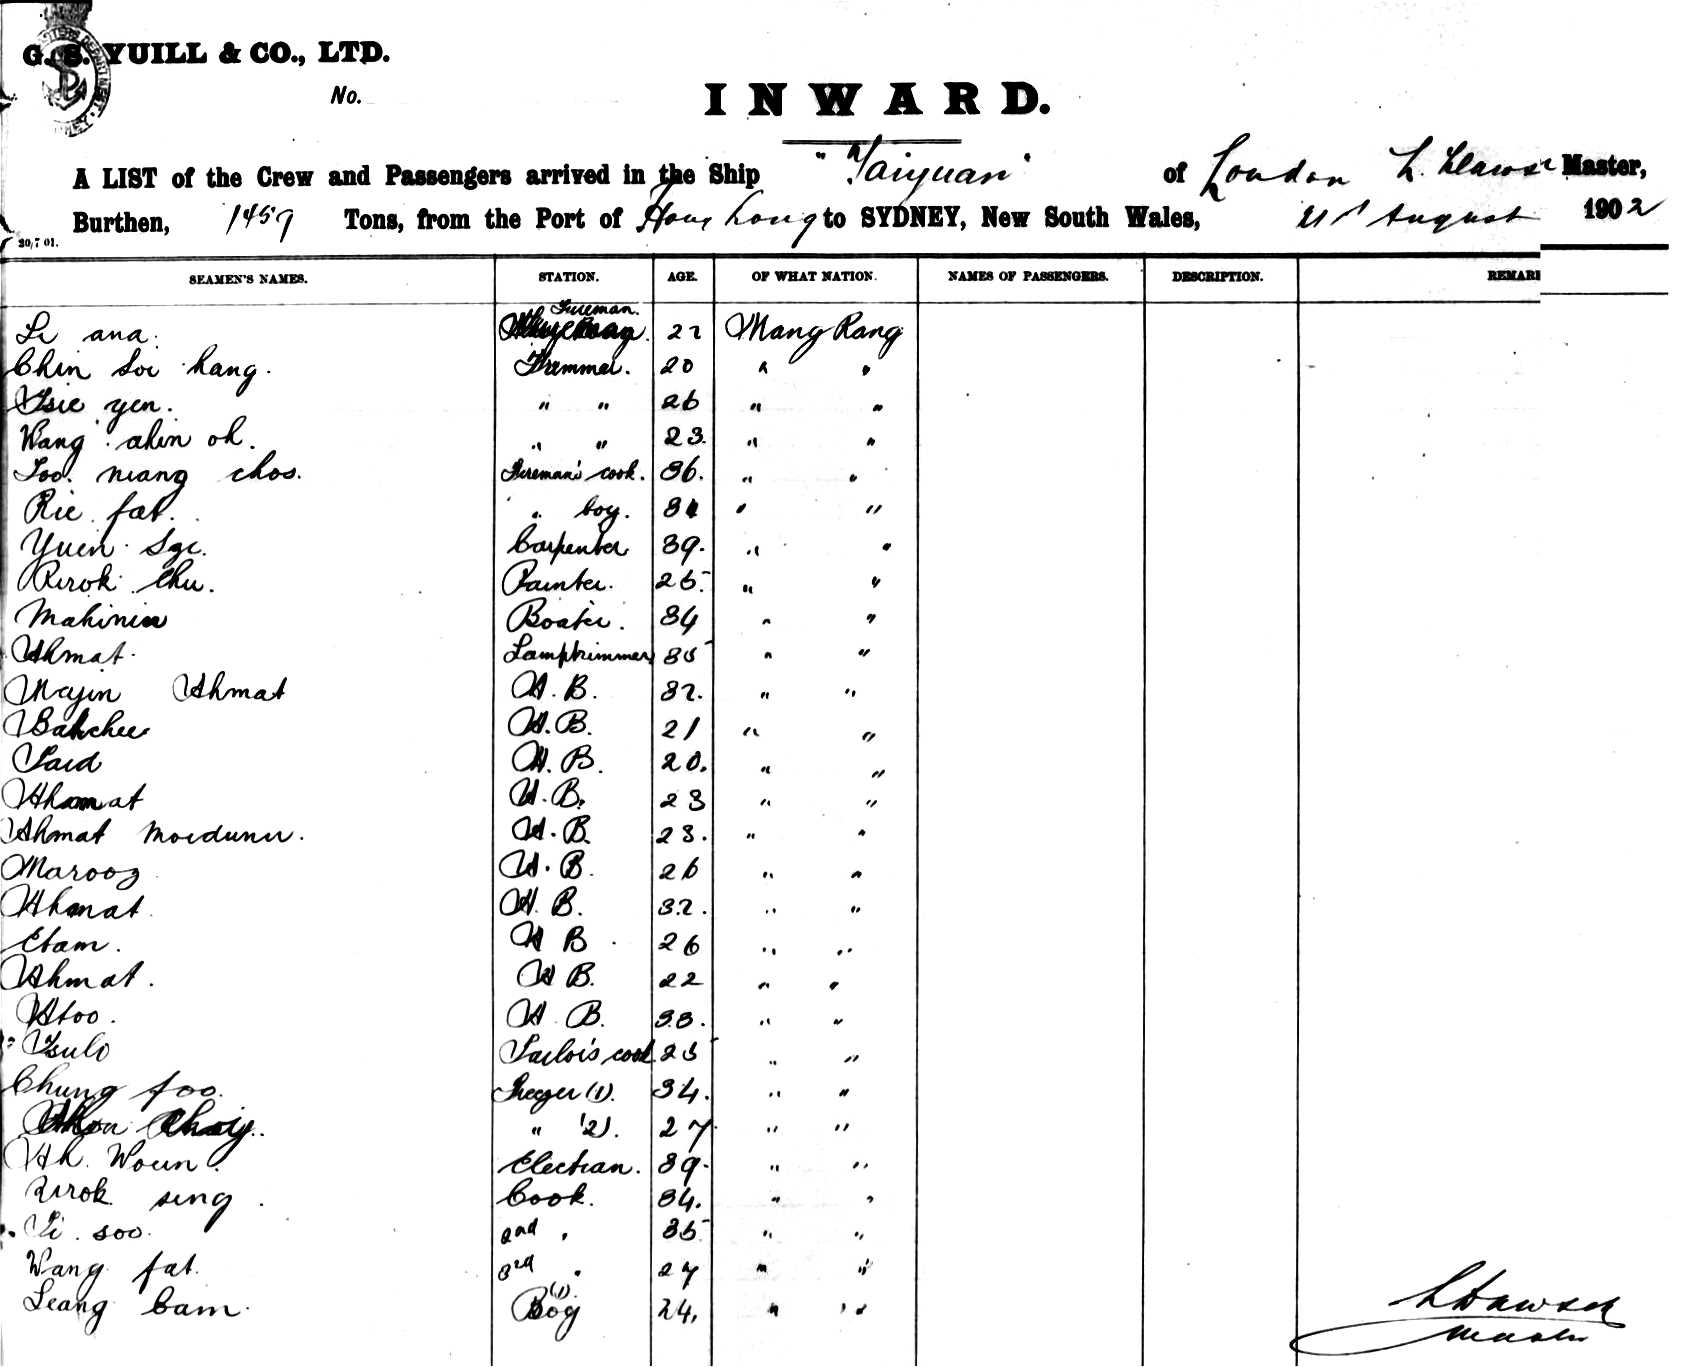 G. S. YUILL & CO., LTD.
No.
INWARD.
A LIST of the Crew and Passengers arrived in the Ship "Taiyuan" of London L. Dawson Master,
Burthen, 1459 Tons, from the Port of Hong Kong to SYDNEY, New South Wales, 21st August 1902
20/7 01.
SEAMEN'S NAMES. STATION. AGE. OF WHAT NATION. NAMES OF PASSENGERS. DESCRIPTION. REMARK
Li ana. Fireman. 22 Mang Kang
Chin Soi Kang. Trimmer. 20 " "
Tsie yen. " " 26 " "
Wang ahin oh. " " 23. " "
Soo niang chos. Fireman's cook. 36. " "
Kie fat. " boy. 31 " "
Yuen Sge. Carpenter 39. " "
Kwok Chu. Painter. 25. " "
Mahinin Boats'n. 34 " "
Ahmat. Lamptrimmer 35 " "
Majin Ahmat A. B. 32. " "
Bahchee A. B. 21 " "
Said A. B. 20. " "
Ahmat A. B. 23 " "
Ahmat Moidunu. A. B. 23. " "
Maroog A. B. 26 " "
Ahmat A. B. 32. " "
Etam. A B 26 " "
Ahmat. A B. 22 " "
Atoo. A B. 33. " "
Tsulo Sailor's cook. 25 " "
Chung foo. Greeger (1). 34. " "
" (2). 27 " "
Ah Woun. Electrian. 39. " "
Kwok sing. Cook. 34. " "
Li soo. 2nd " 35 " "
Wang fat. 3rd " 27 " "
Leang Cam. Boy (1). 24. " "
L Dawson
Master